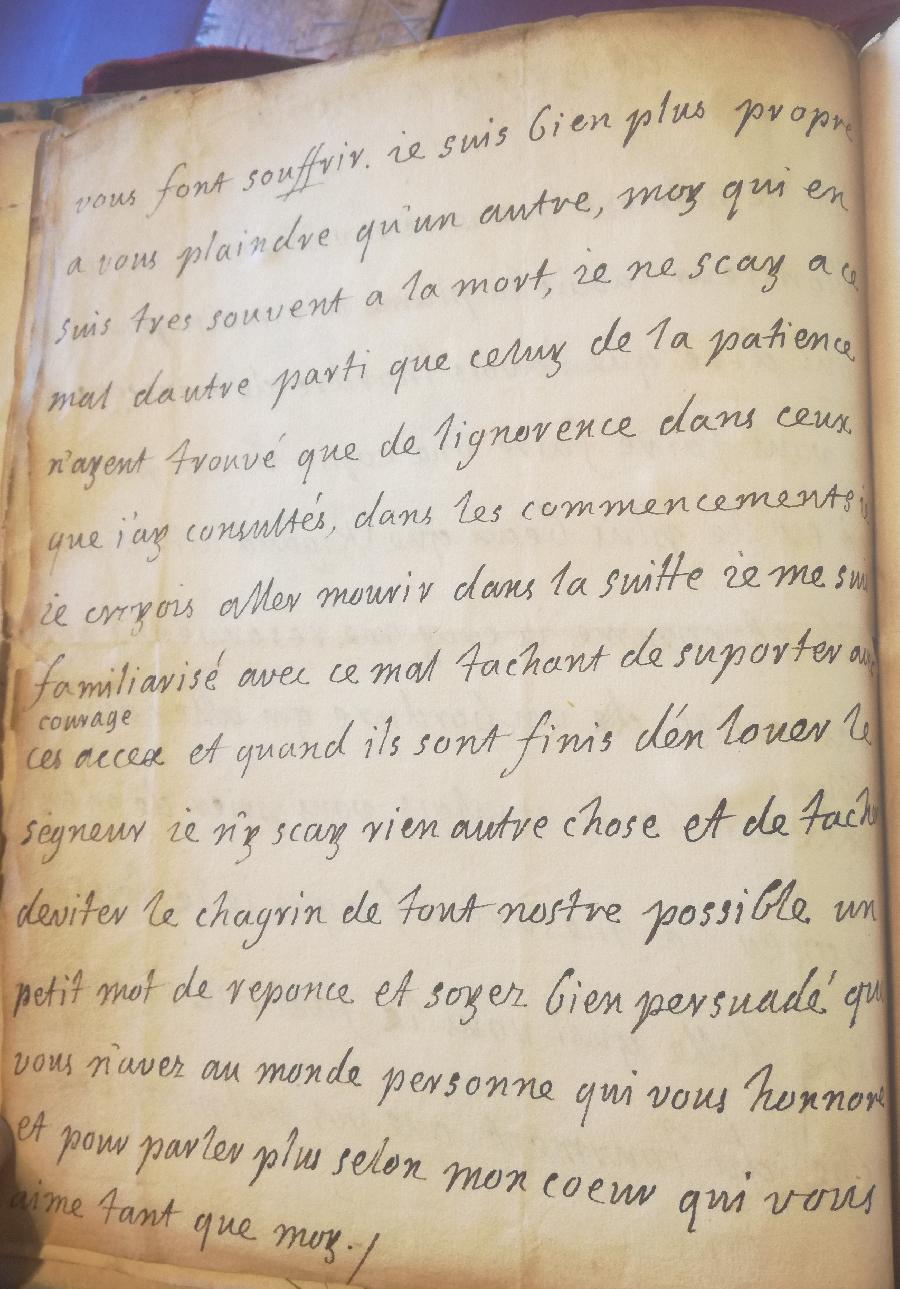 vous font souffrir. ie suis bien plus propre
a vous plaindre qu'un autre, moy qui en
suis tres souvent a la mort, ie ne scay a ce
mal dautre parti que celuy de la patience
n'ayent trouvé que de lignorence dans ceux
que i'ay consultés, dans les commencements
ie croyois aller mourir dans la suitte ie me sui
familiarisé avec ce mal tachant de suporter avec
courage
ces acces et quand ils sont finis dén louer le
segneur ie n'y scay rien autre chose et de tach
deviter le chagrin de tout nostre possible un
petit mot de reponce et soyez bien persuadé qu
vous n'avez au monde personne qui vous honnore
et pour parler plus selon mon coeur qui vous
aime tant que moy./